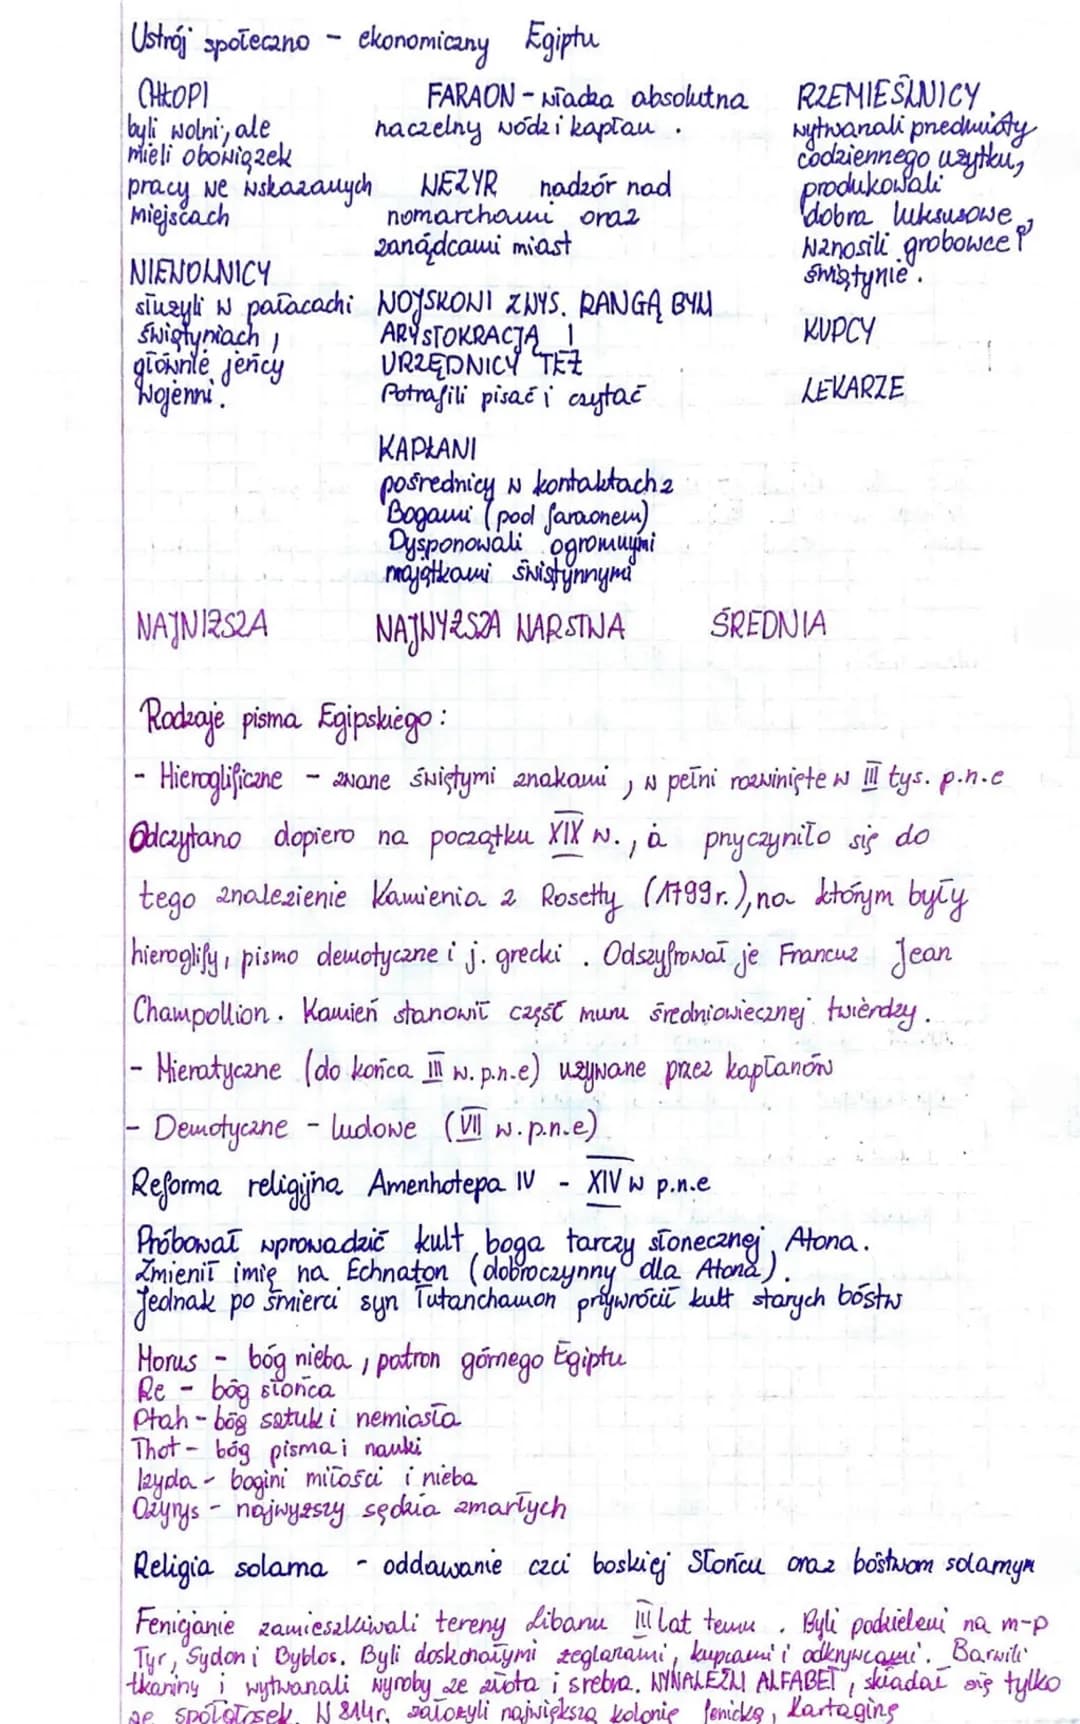 Ustrój społeczno - ekonomiczny Egiptu
CHŁOPI
byli wolni, ale
mieli obowiązek
pracy we wskazanych
miejscach
NIEWOLNICY
służyli w pałacach i
świątyniach,
głównie jeńcy
wojenni.
NAJNIŻSZA
FARAON - władza absolutna
naczelny wódz i kapłan.
WEZYR nadzór nad
nomarchami oraz
zarządcami miast
WOJSKOWI Z WYS. RANGĄ BYLI
ARYSTOKRACJĄ I
URZĘDNICY TEŻ
Potrafili pisać i czytać
KAPŁANI
pośrednicy w kontaktach z
Bogami (pod faraonem)
Dysponowali ogromnymi
majątkami świątynnymi
NAJWYŻSZA WARSTWA
RZEMIEŚLNICY
wytwarzali przedmioty
codziennego użytku,
produkowali
dobra luksusowe,
wznosili grobowce i
świątynie.
KUPCY
LEKARZE
ŚREDNIA
Rodzaje pisma Egipskiego:
- Hieroglificzne - zwane świętymi znakami, w pełni rozwinięte w III tys. p.n.e
Odczytano dopiero na początku XIX w., a przyczyniło się do
tego znalezienie Kamienia z Rosetty (1799r.), na którym były
hieroglify, pismo demotyczne i j. grecki. Odszyfrował je Francuz Jean
Champollion. Kamień stanowił część muru średniowiecznej twierdzy.
- Hieratyczne (do końca III w. p.n.e) używane przez kapłanów
- Demotyczne - ludowe (VII w. p.n.e)
Reforma religijna Amenhotepa IV - XIV w p.n.e
Próbował wprowadzić kult boga tarczy słonecznej, Atona.
Zmienił imię na Echnaton (dobroczynny dla Atona).
Jednak po śmierci syn Tutanchamon przywrócił kult starych bóstw
Horus - bóg nieba, patron górnego Egiptu
Re - bóg słońca
Ptah - bóg sztuk i rzemiosła
Thot - bóg pisma i nauki
Izyda - bogini miłości i nieba
Ozyrys - najwyższy sędzia zmarłych
Religia solarna - oddawanie czci boskiej Słońcu oraz bóstwom solarnym
Fenicjanie zamieszkiwali tereny Libanu III lat temu. Byli podzieleni na m-p
Tyr, Sydon i Byblos. Byli doskonałymi żeglarzami, kupcami i odkrywcami. Barwili
tkaniny i wytwarzali wyroby ze złota i srebra. WYNALEŹLI ALFABET, składał się tylko
ze spółgłosek. W 814r. założyli największą kolonię fenicką, Kartaginę